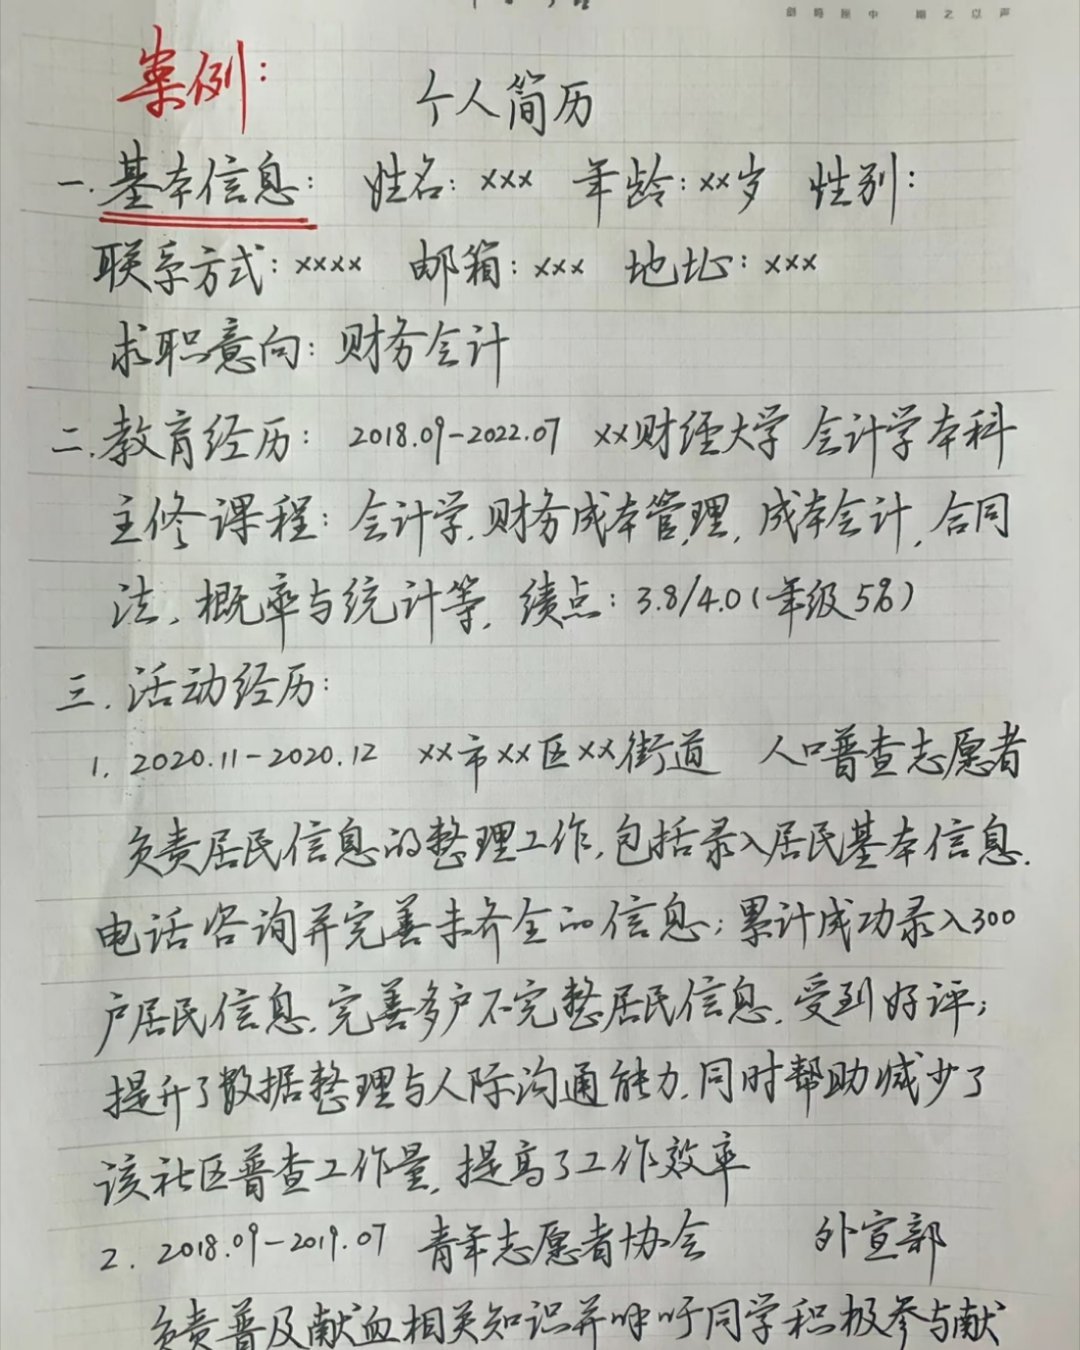 案例：
个人简历
一.基本信息： 姓名：xxx 年龄：xx岁 性别：
联系方式：xxxx 邮箱：xxx 地址：xxx
求职意向：财务会计
二.教育经历： 2018.09-2022.07 xx财经大学 会计学本科
主修课程：会计学,财务成本管理,成本会计,合同
法,概率与统计等,绩点：3.8/4.0(年级5%)
三.活动经历：
1. 2020.11-2020.12 xx市xx区xx街道 人口普查志愿者
负责居民信息的整理工作,包括录入居民基本信息,
电话咨询并完善未齐全的信息;累计成功录入300
户居民信息,完善多户不完整居民信息,受到好评;
提升了数据整理与人际沟通能力,同时帮助减少了
该社区普查工作量,提高了工作效率
2. 2018.09-2019.07 青年志愿者协会 外宣部
负责普及献血相关知识并呼吁同学积极参与献